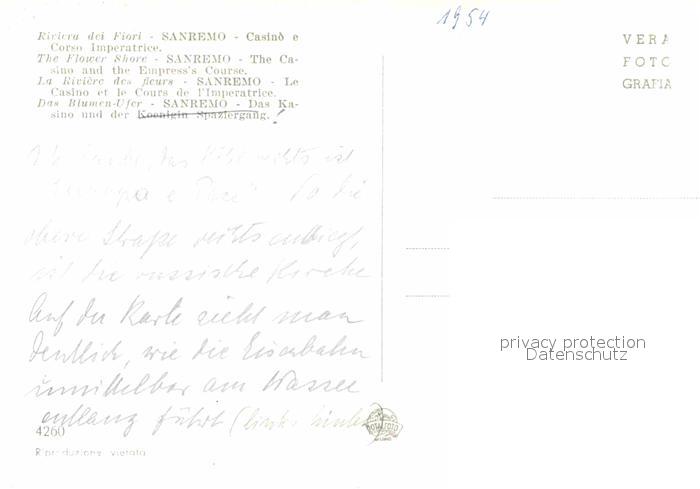 1954
Riviera dei Fiori - SANREMO - Casinò e
Corso Imperatrice.
The Flower Shore - SANREMO - The Ca-
sino and the Empress's Course.
La Rivière des fleurs - SANREMO - Le
Casino et le Cours de l'Imperatrice.
Das Blumen-Ufer - SANREMO - Das Ka-
sino und der Koenigin Spaziergang. !
VERA
FOTO
GRAFIA
das rechts ist
"Europa e Pace" Wo die
obere Straße rechts einbiegt,
ist die russische Kirche
Auf der Karte sieht man
deutlich, wie die Eisenbahn
unmittelbar am Wasser
entlang führt (links unten
4260
Riproduzione vietata
privacy protection
Datenschutz